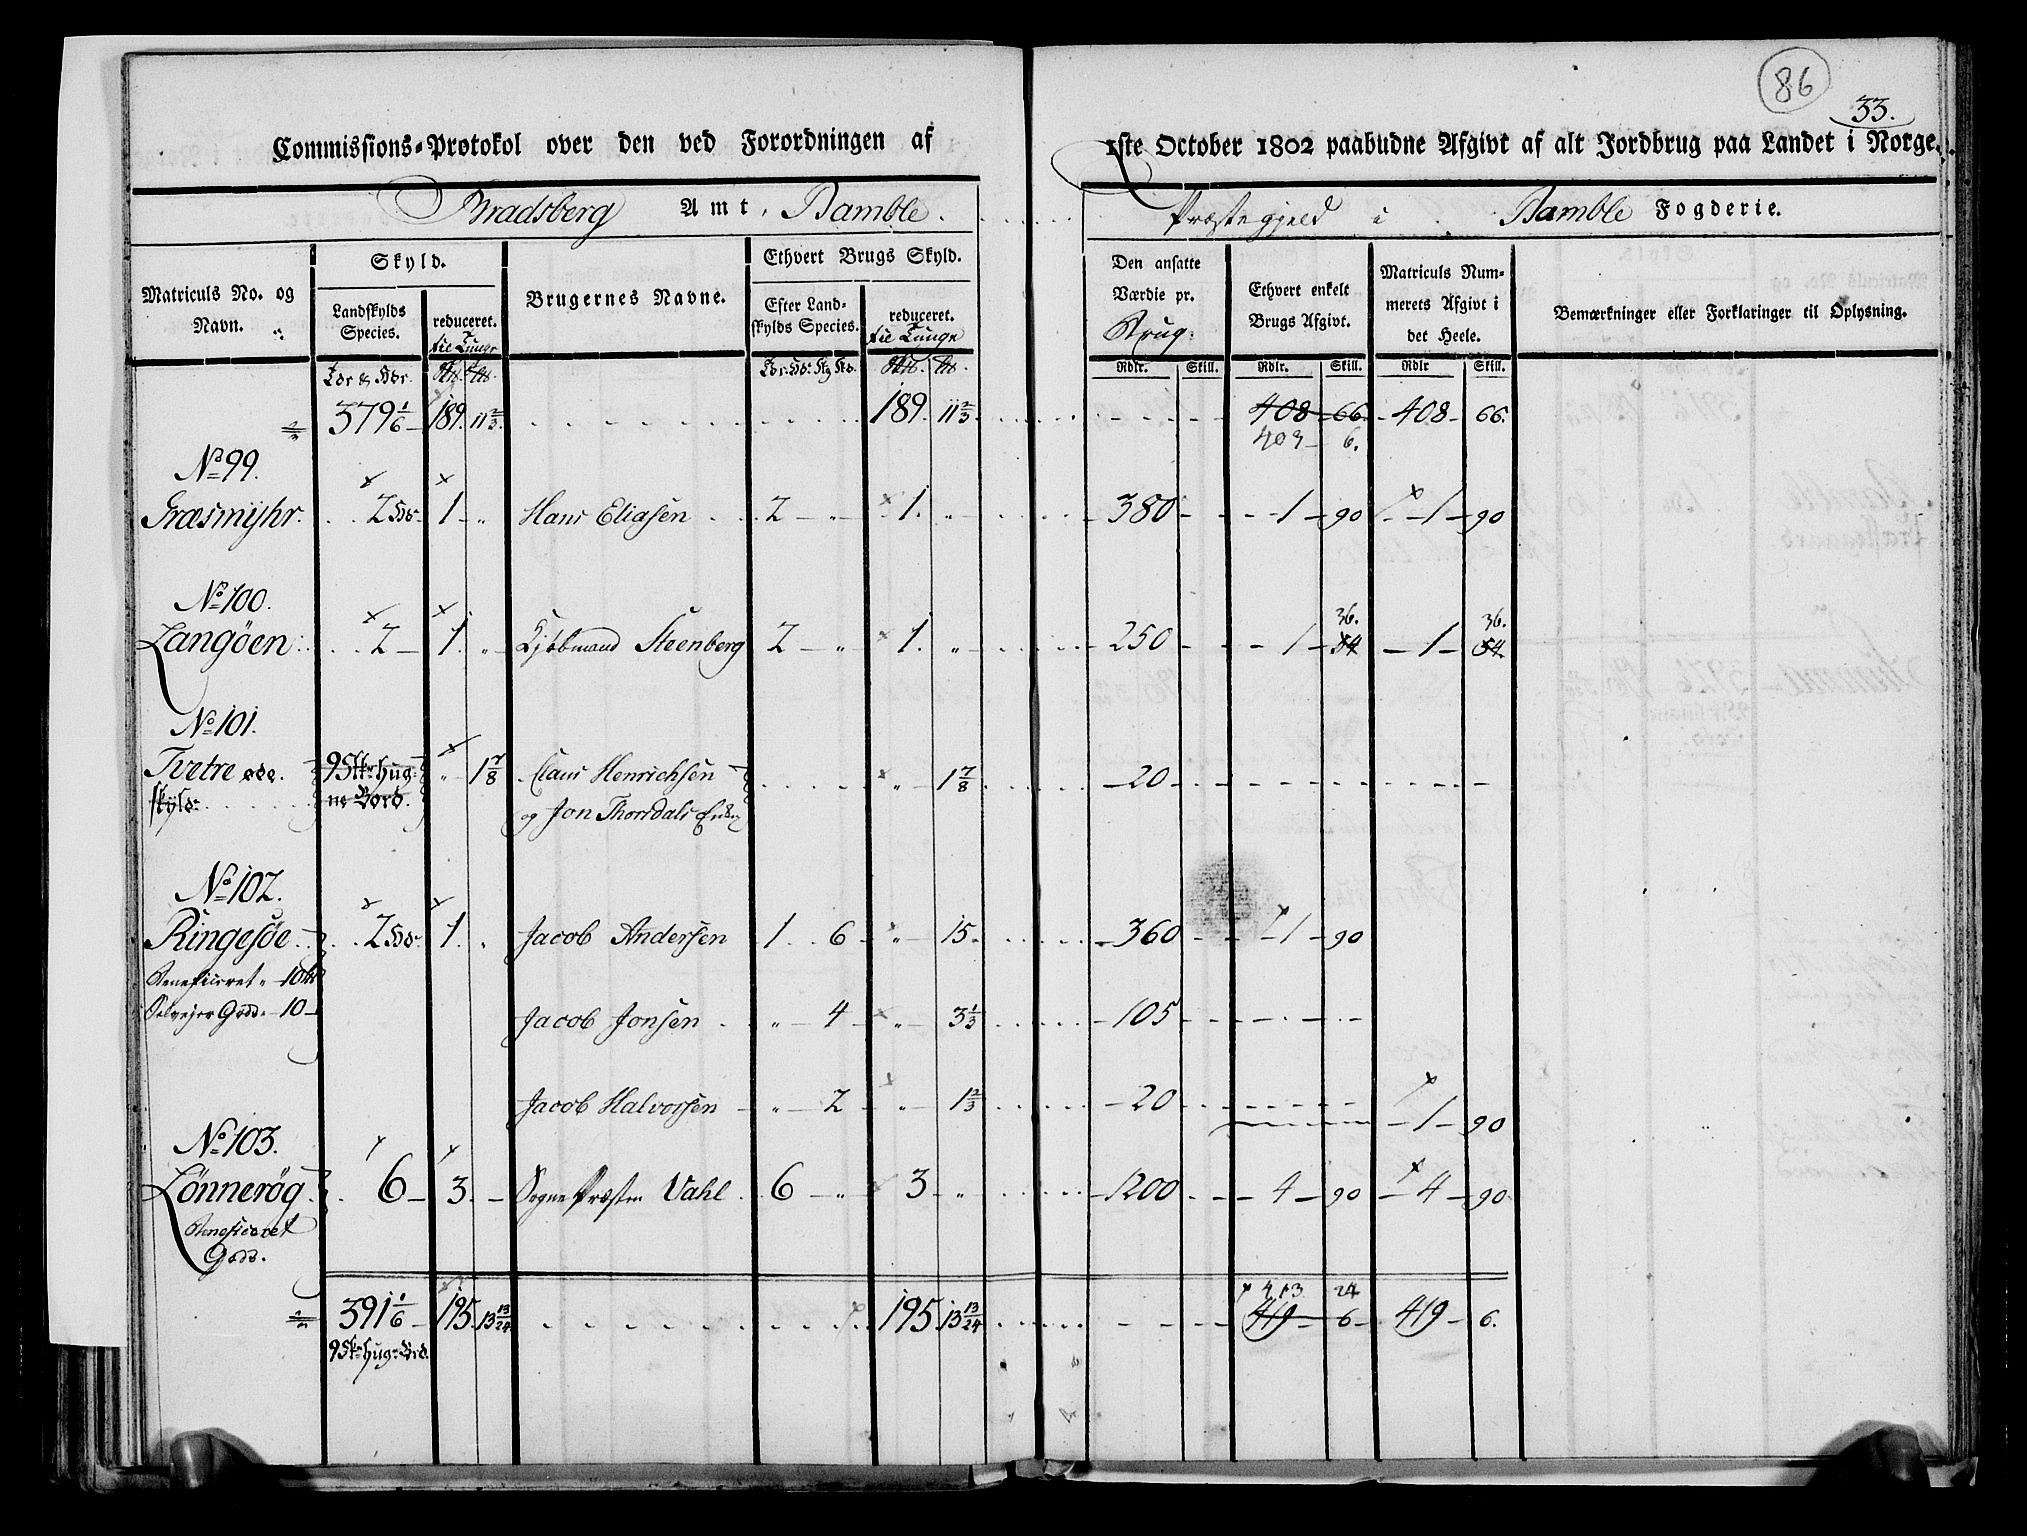 86
33.
Commissions-Protokol over den ved Forordningen af 1ste October 1802 paabudne Afgivt af alt Jordbrug paa Landet i Norge.
Bradsberg Amt, Bamble Præstegjeld i Bamble Fogderie.
Matriculs No. og Navn.
Skyld.
Landskylds Species.
reduceret. til Tunge
Brugernes Navne.
Ethvert Brugs Skyld.
Efter Landskylds Species.
reduceret. til Tunge
Den ansatte Værdie pr. Brug.
Ethvert enkelt Brugs Afgivt.
Matriculs Nummerets Afgivt i det Heele.
Bemærkninger eller Forklaringer til Oplysning.
Rdlr. Skill. Rdlr. Skill. Rdlr Skill.
379 1/6 189. 11 2/3 189. 11 2/3 408 66 408 66.
403 6.
No 99.
Græsmyhr. 2 1 " Hans Eliasen 2 " 1. " 380 1 90 1 90
No 100. 36. 36.
Langöen 2 1. " Kjøbmand Steenberg 2 " 1. " 250 1 54 1 54.
No 101.
Tvetre øde 9 Sk hug " 1 7/8 Claus Henrichsen " 1 7/8 20
skyld ne Bord. og Jon Thorsdals
No 102.
Ringesöe 2 1. " Jacob Andersen 1 6 " 15. 360 1 90
Beneficeret " 10
Selvejer Gods " 10 Jacob Jonsen " 4 " 3 1/3 105
Jacob Halvorsen " 2 " 1 2/3 20 1 90
No 103.
Lönnerög 6 3. Sogne Præsten Vahl 6 " 3 " 1200 4 90 4 90
Beneficeret
Gods.
413 24
391 1/6 195. 13 13/24 195. 13 13/24 419 6 419 6.
9 Sk hug Brd.